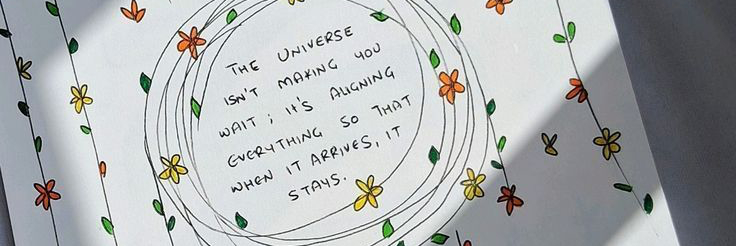 THE UNIVERSE
ISN'T MAKING YOU
WAIT ; IT'S ALIGNING
EVERYTHING SO THAT
WHEN IT ARRIVES, IT
STAYS.